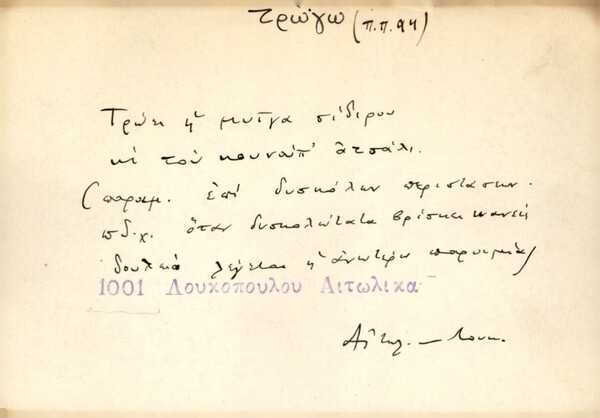 τρώγω (π.π. 94)
Τρώει ἡ μυῖγα σίδιρου
κὶ τοὺ κουνούπ' ἀτσάλι.
(παροιμ. ἐπὶ δυσκόλων περιστάσεων.
π.δ.χ. ὅταν δυσκολώτατα βρίσκει κανείς
δουλειά λέγεται ἡ ἀνωτέρω παροιμία)
1001 Λουκοπουλου Αιτωλικα
Αἰτωλ. — Λουκ.